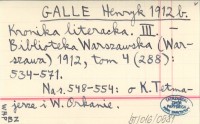 GALLE Henryk 1912 b.
Kronika literacka. III –
Biblioteka Warszawska (War-
szawa) 1912, tom 4 (288):
534–571.
Na s. 548–554: o K. Tetma-
jerze i W. Orkanie.